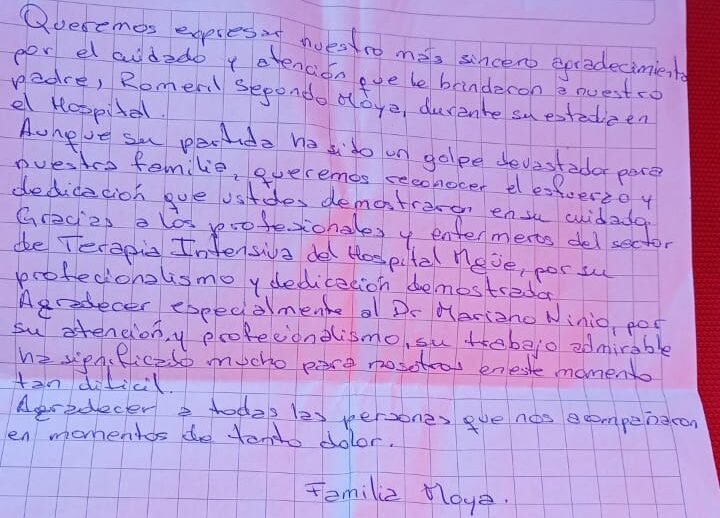 Queremos expresar nuestro más sincero agradecimiento
por el cuidado y atención que le brindaron a nuestro
padre, Romeril Segondo Moya, durante su estadia en
el Hospital.
Aunque su partida ha sido un golpe devastador para
nuestra familia, queremos reconocer el esfuerzo y
dedicación que ustdes demostraron en su cuidado.
Gracias a los profesionales y enfermeros del sector
de Terapia Intensiva del Hospital Ñeüe, por su
profecionalismo y dedicación demostrada.
Agradecer especialmente al Dr Mariano Ninio, por
su atención, y profecionalismo, su trabajo admirable
ha significado mucho para nosotros en este momento
tan dificil.
Agradecer a todas las personas que nos acompañaron
en momentos de tanto dolor.
Familia Moya.